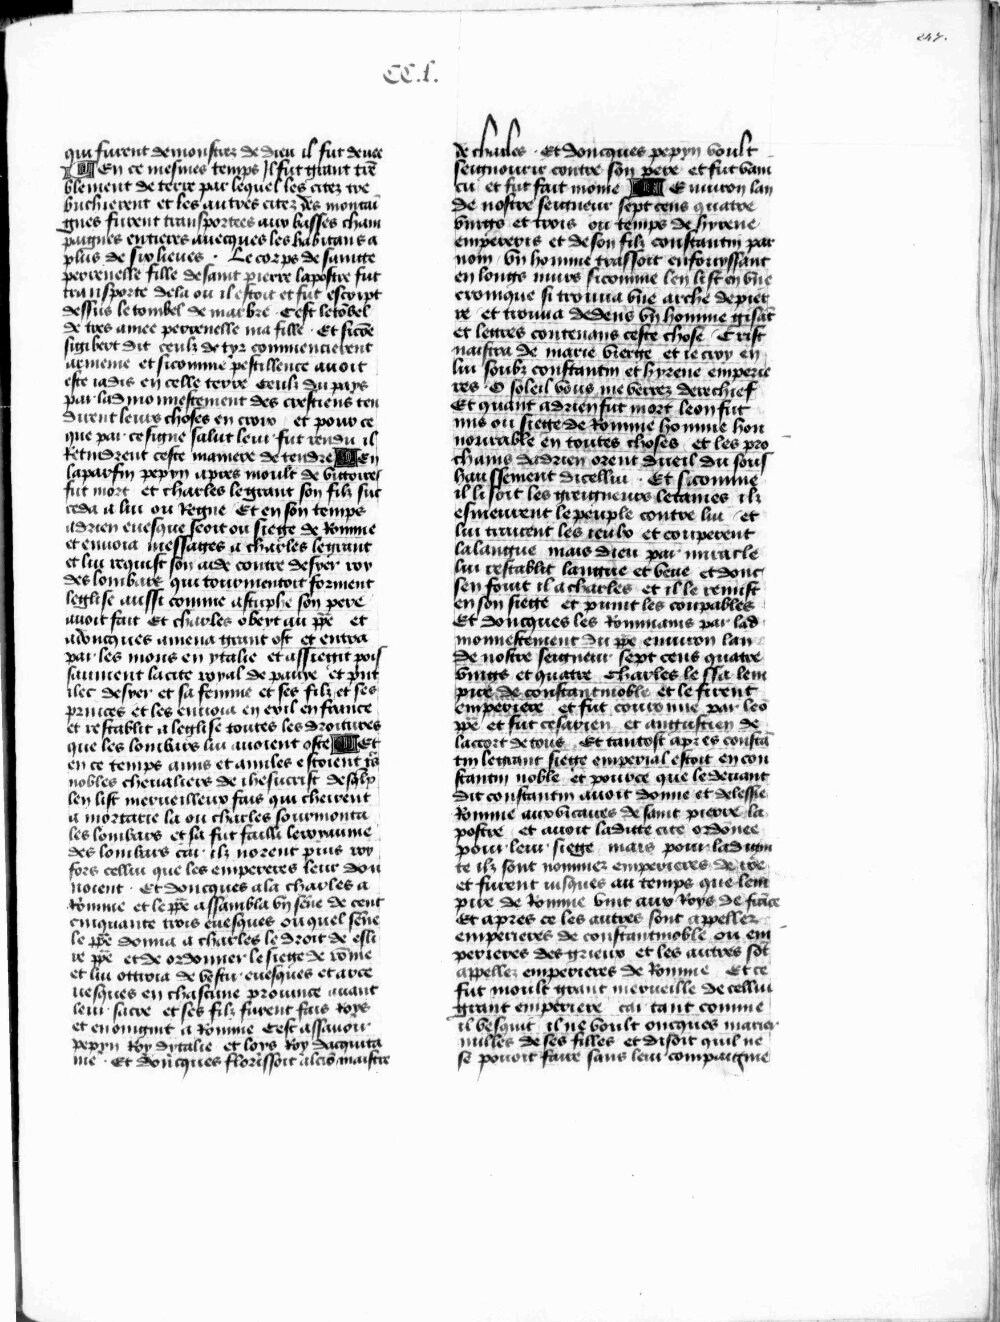 247.
CC.l.
qui furent demonstrez de dieu il fut deuee
En ce mesmes temps Il fut grant trē
blement de terre par lequel les citez tre
buchierent et les autres citez des montai
gnes furent transportees aux basses cham
paignes entieres auecques les habitans a
plus de six lieues. Le corps de saincte
perrenelle fille de saint pierre lapostre fut
transporte dela ou il estoit et fut escript
dessus le tombel de marbre. Cest le tōbel
de tres amee perrenelle ma fille. Et sicōe
sigibert dit ceulx de tyr commencierent
armenie et sicomme pestillence auoit
este iadis en celle terre Ceulx du pays
par ladmonnestement des crestiens ton
dirent leurs choses en croix et pour ce
que par ce signe salut leur fut rendu il
Retindrent ceste maniere de tendre En
laparfin pepyn apres moult de victoires
fut mort et charles le grant son filz suc
ceda a lui ou Regne Et en son temps
adrien euesque seoit ou siege de Romme
et enuoia messages a charles le grant
et lui requist son aide contre desyer roy
des lombars qui tourmentoit forment
leglise aussi comme astulphe son pere
auoit fait Et charles obeit au pp̄e et
adoncques amena grant ost et entra
par les mons en ytalie et assiegit pois
saument la cite royal de pauye et print
ilec desyer et sa femme et ses filz et ses
princes et les enuoia en exil en france
et restablit a leglise toutes les droitures
que les lombars lui auoient oste Et
en ce temps amis et amiles estoient
nobles cheualiers de ihesucrist
len list merueilleux fais qui cheirent
a mortarie la ou charles sourmonta
les lombars et sa fut failli le royaume
des lombars car ilz norent puis roy
fors cellui que les empereres leur don
noient. Et doncques ala charles a
Romme et le pp̄e assambla vn sene de cent
cinquante trois euesques ouquel sene
le pp̄e donna a charles le droit de esli
re pp̄e et de ordonner le siege de rōme
et lui ottroia de vestir euesques et arce
uesques en chascune prouince auant
leur sacre et ses filz furent fais Roys
et enoingnit a Romme Cest assauoir
pepyn Roy dytalie et loys Roy dacquita
ine. Et doncques florissoit alcis maistre
de charles. Et doncques pepyn voult
seignourir contre son pere et fut vain
cu et fut fait moine Enuiron lan
de nostre seigneur sept cens quatre
vings et trois ou temps de hyrene
empereris et de son filz constantin par
nom vn homme trassoit enfouyssant
en longs murs sicomme len list en vne
cronique si trouua vne arche de pier
re et trouua dedens vn homme gisāt
et lettres contenans ceste chose Crist
naistra de marie vierge et ie croy en
lui soubz constantin et hyrene emperie
res O soleil vous me verrez derechief
Et quant adrien fut mort leon fut
mis ou siege de Romme homme hon
nourable en toutes choses et les pro
chains dadrien orent dueil du sous
haussement dicellui. Et sicomme
il lisoit les greigneurs letanies ilz
esmeurent le peuple contre lui et
lui trairent les ieulx et couperent
la langue mais dieu par miracle
lui restablit langue et veue et donc
sen fouit il a charles et il le remist
en son siege et punit les coupables
Et doncques les Rommains par lad
monnestement du pp̄e enuiron lan
de nostre seigneur sept cens quatre
vings et quatre Charles lessa lem
pire de constantinoble et le firent
emperiere et fut couronne par leo
pp̄e et fut cesarien et augustien de
laccort de tous Et tantost apres constā
tin le grant siege emperial estoit en con
stantin noble et pource que le deuant
dit constantin auoit donne et delessie
Romme aux vicaires de saint pierre la
postre et auoit laditte cite ordōnee
pour leur siege mais pour la digni
te ilz sont nommez emperieres de rōe
et furent iusques au temps que lem
pire de Romme vint aux Roys de frāce
Et apres ce les autres sont appellez
emperieres de constantinoble ou em
perieres des grieux et les autres sōt
appellez emperieres de Romme Et ce
fut moult grant merueille de cellui
grant emperiere car tant comme
il vesquit il ne voult oncques marier
nulles de ses filles et disoit quil ne
se pouoit faire sans leur compaignie